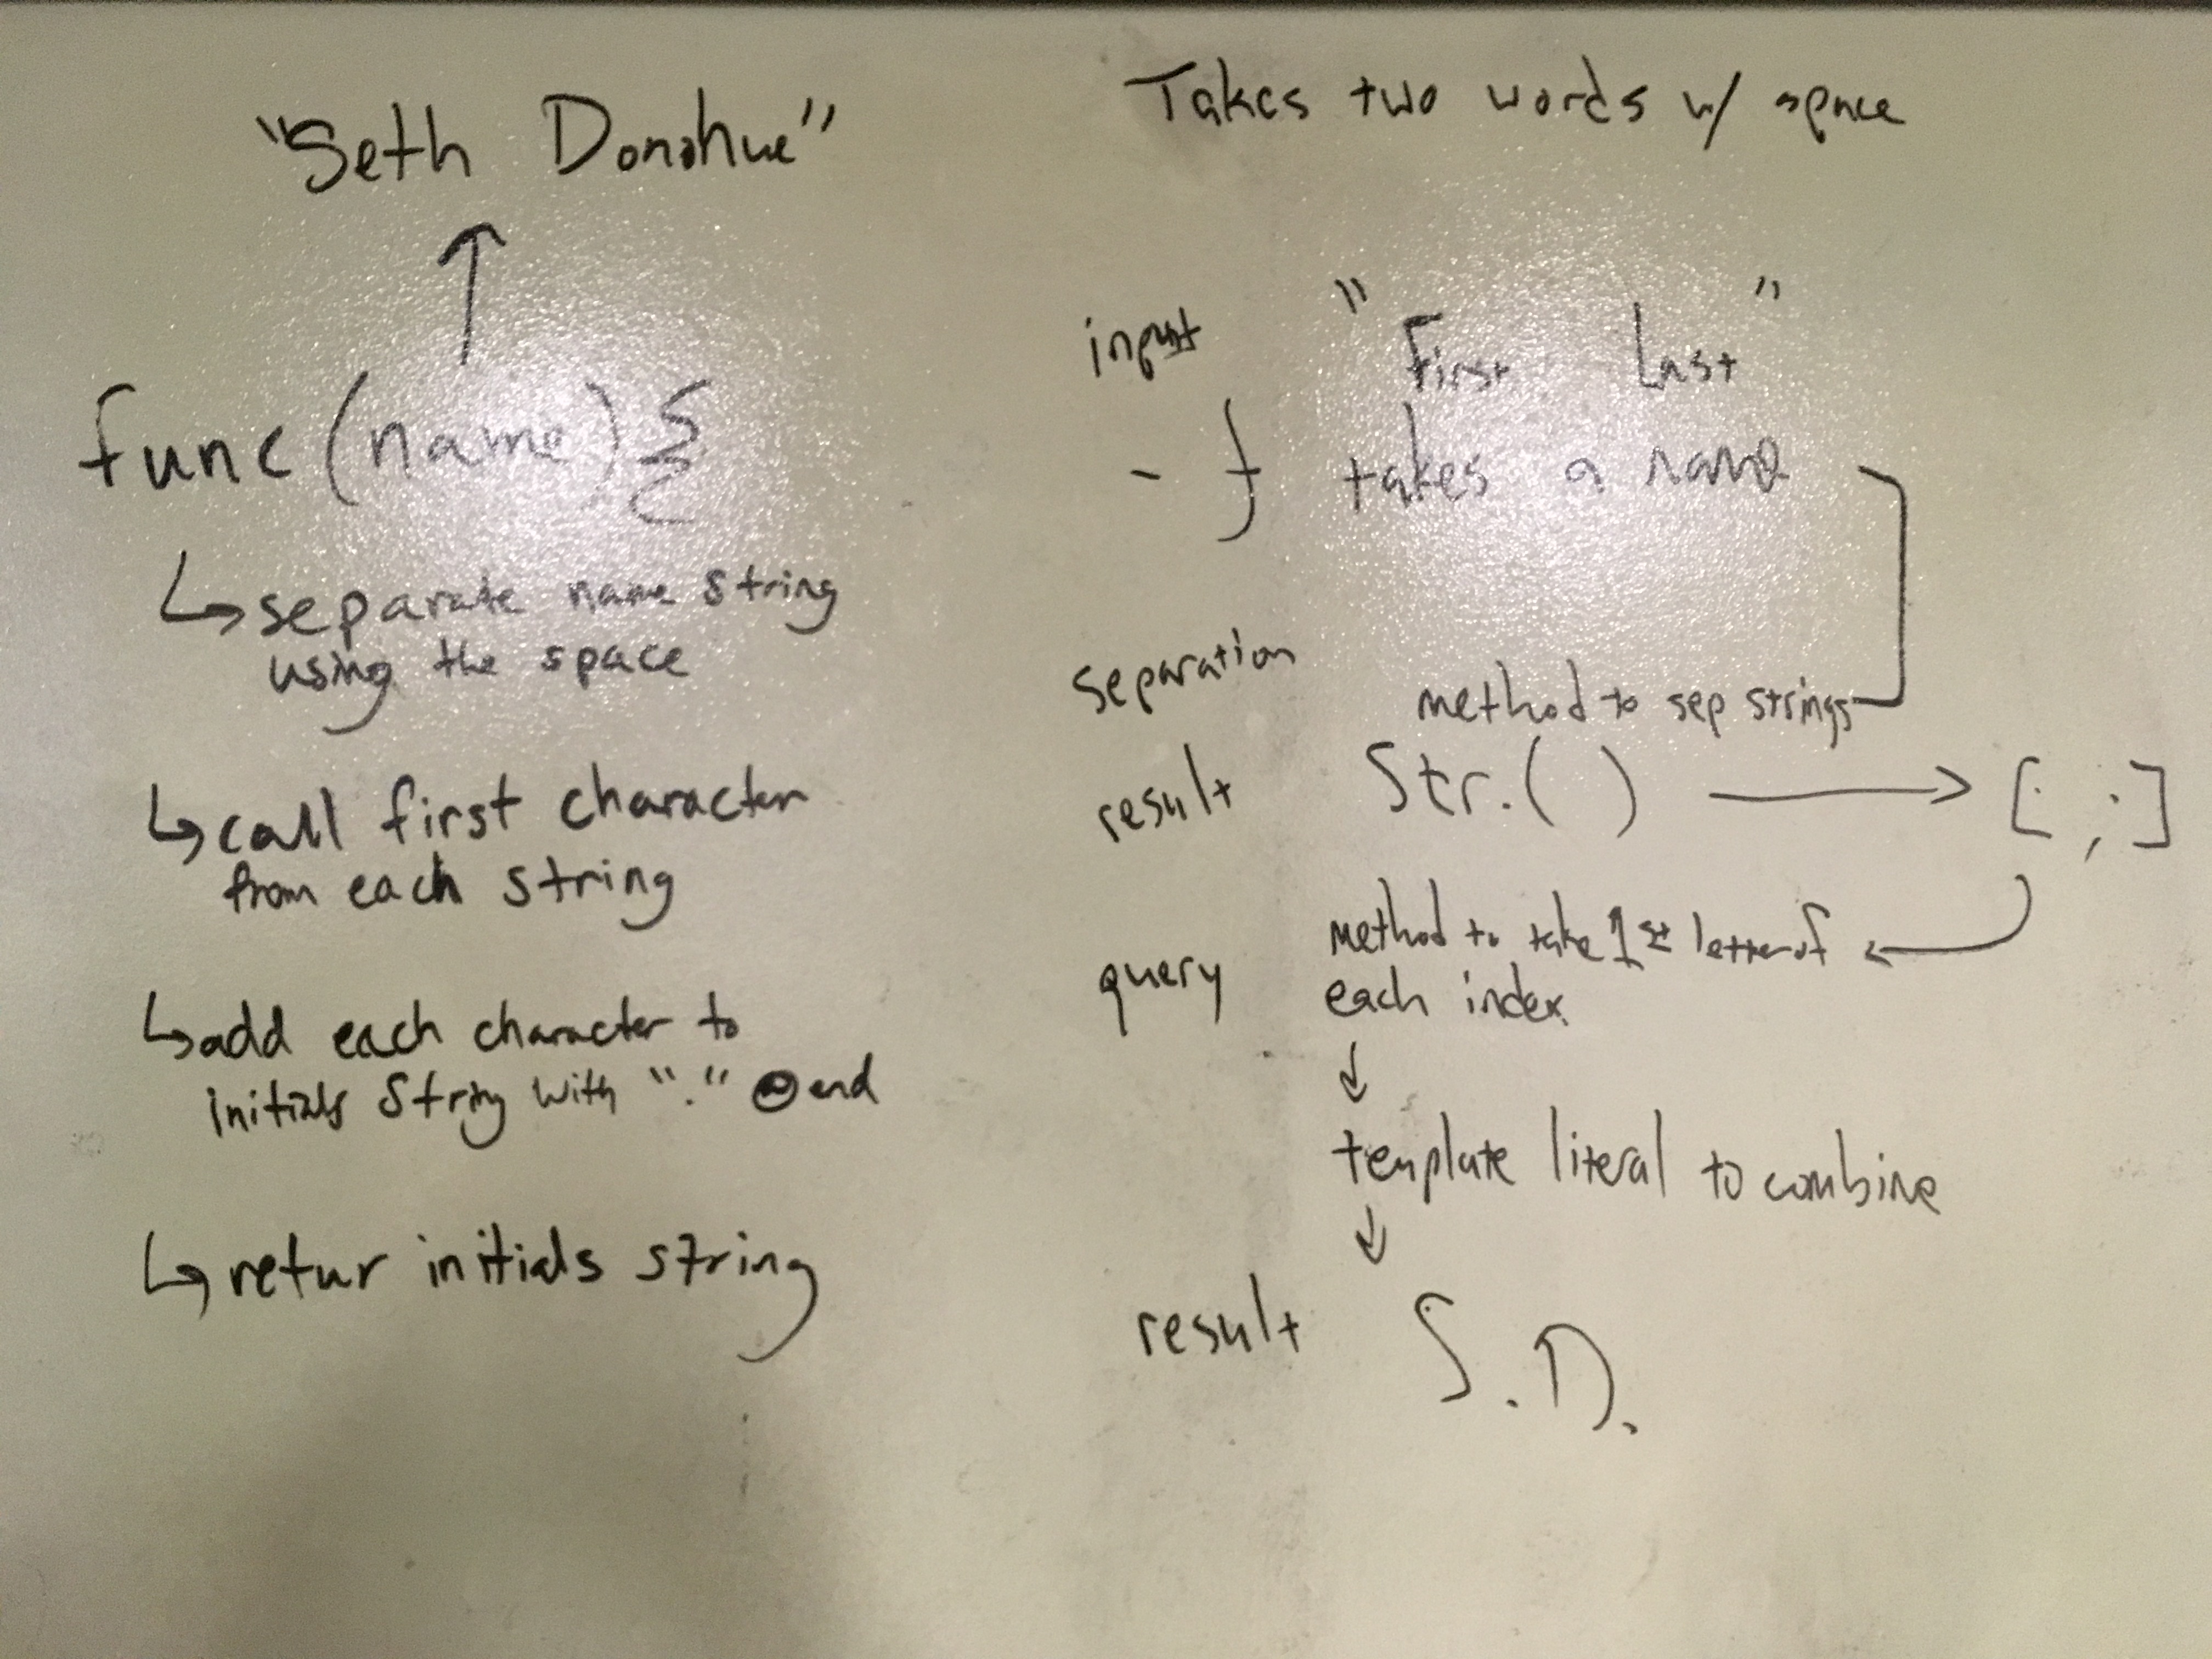 "Seth Donohue"
func(name){
↳ separate name string
using the space
↳ call first character
from each string
↳ add each character to
initials string with "." @ end
↳ retur initials string
Takes two words w/ space
input "First Last"
- f takes a name
separation
method to sep strings
result Str.( ) → [ , ]
query method to take 1st letter of
each index
↓
template literal to combine
↓
result S.D.